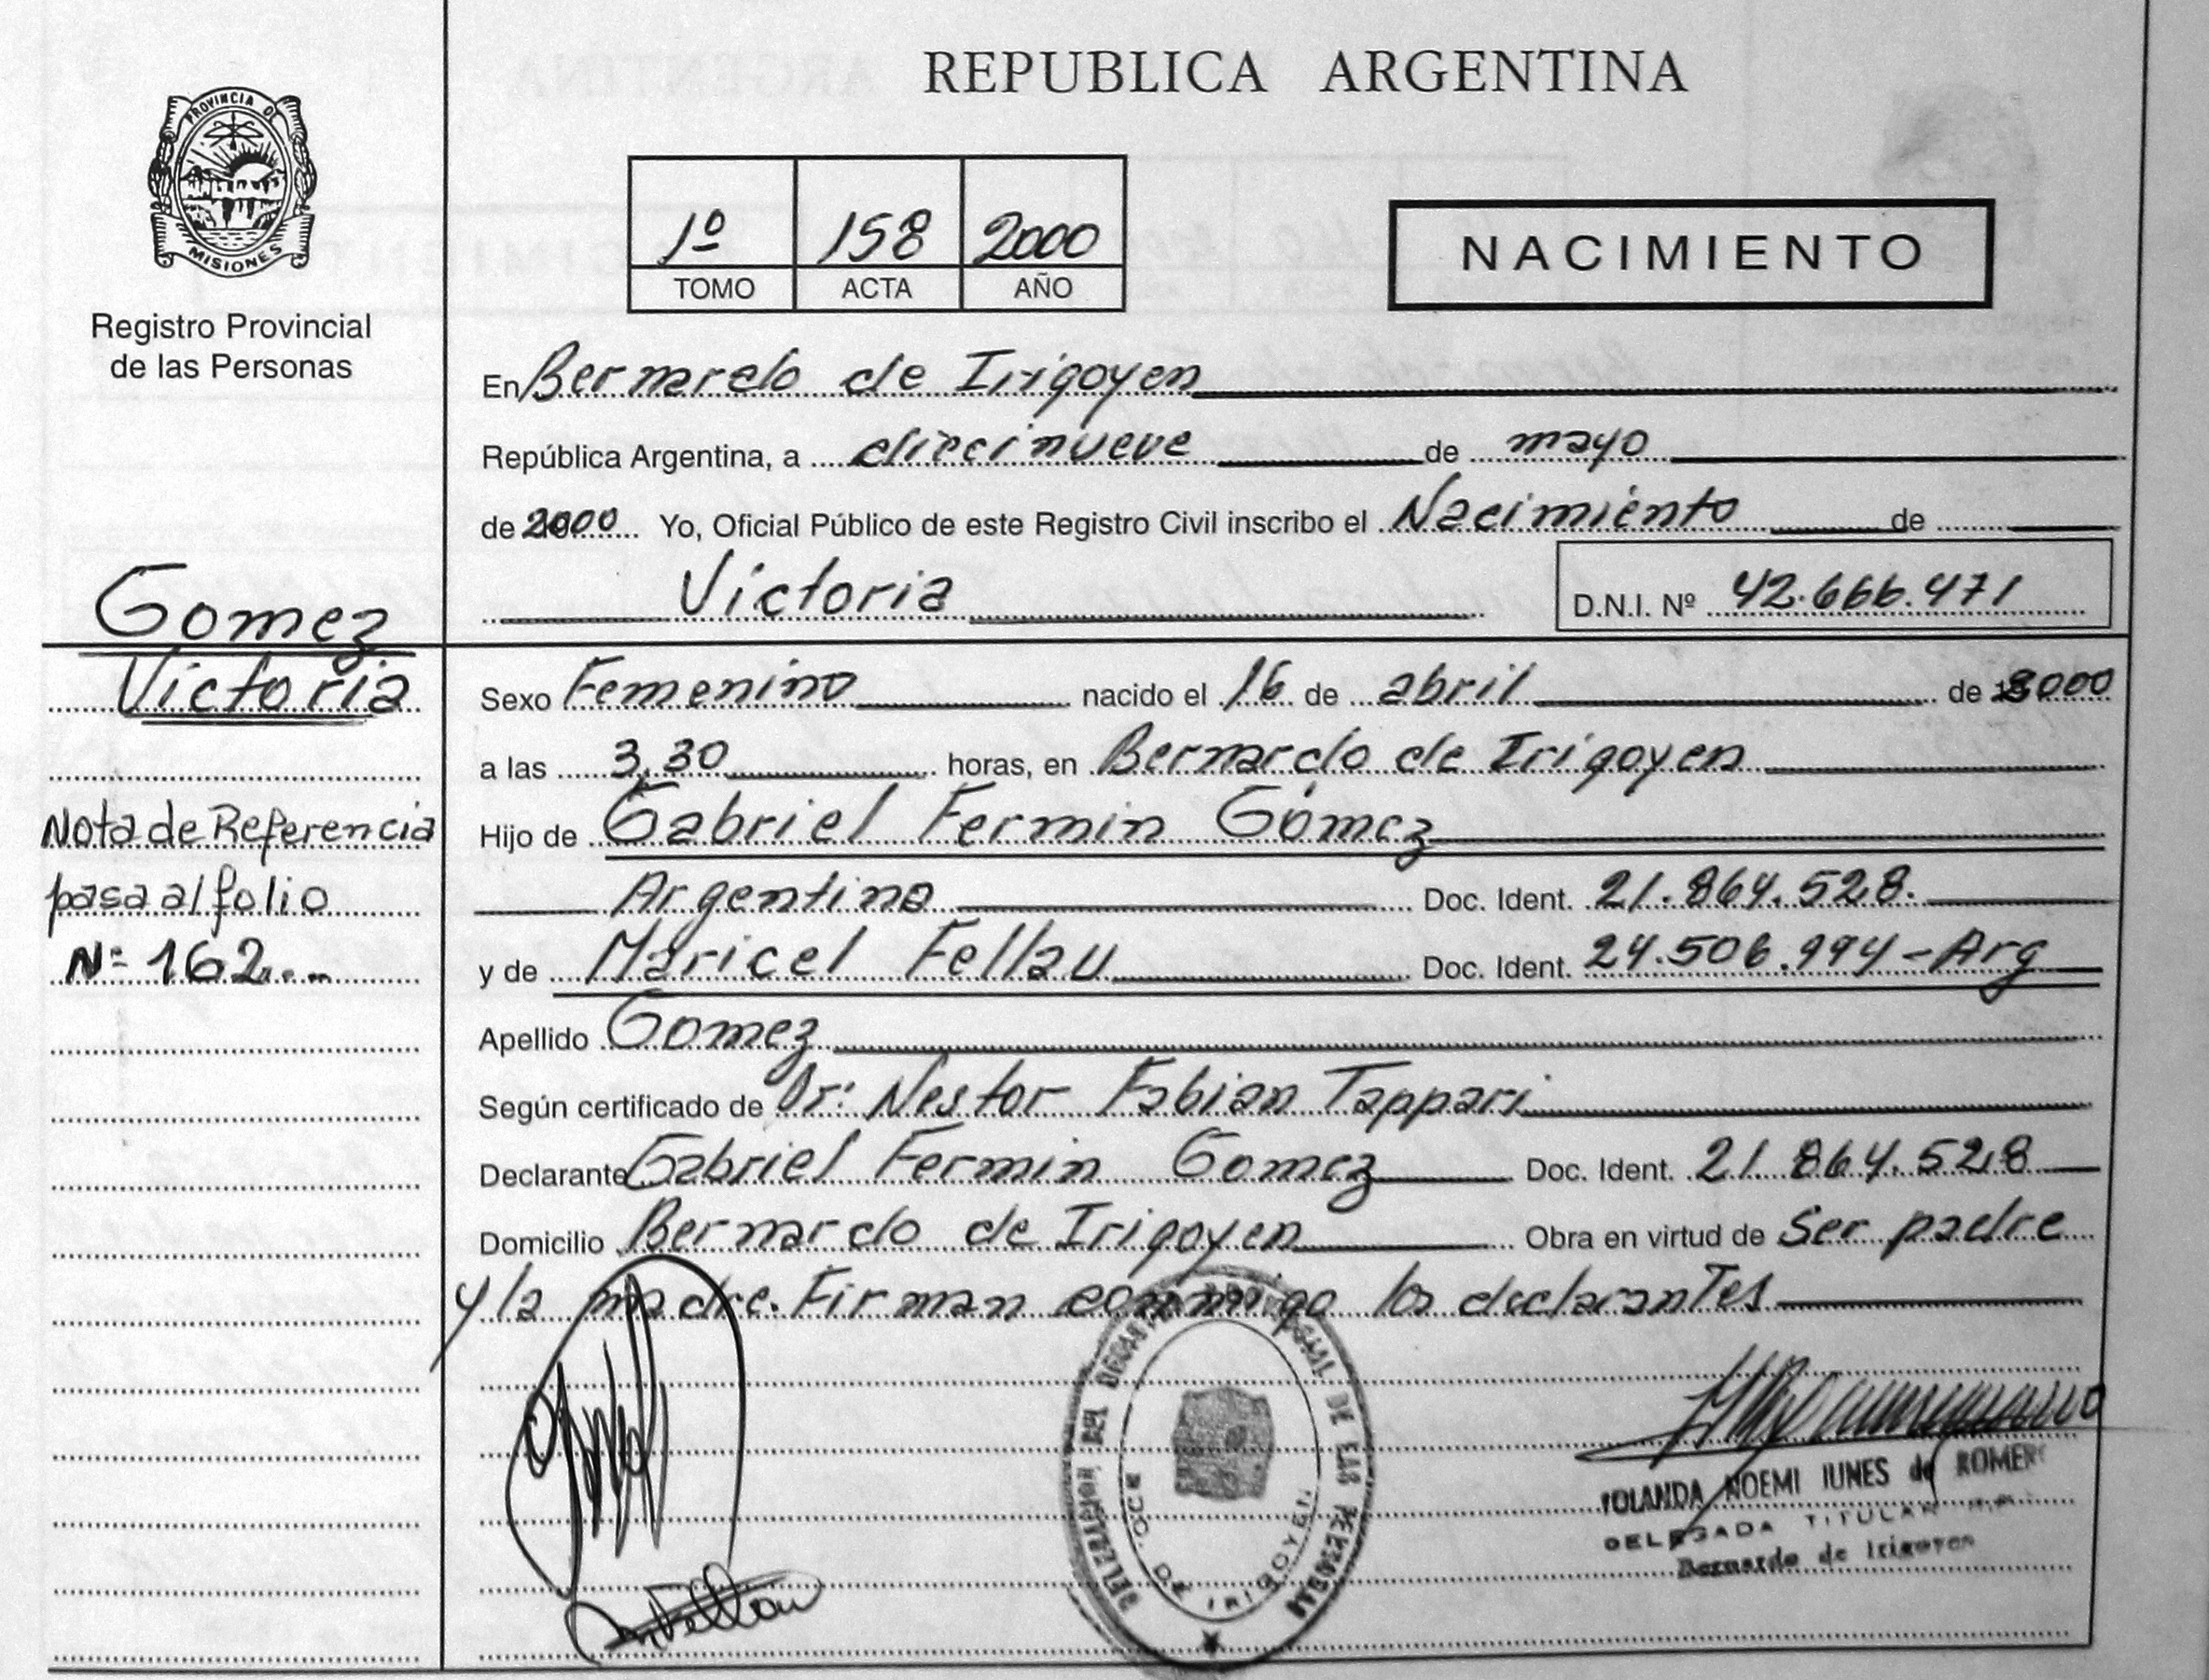 REPUBLICA ARGENTINA
PROVINCIA DE
MISIONES
Registro Provincial
de las Personas
1º 158 2000
TOMO ACTA AÑO
NACIMIENTO
En Bernardo de Irigoyen
República Argentina, a diecinueve de mayo
de 2000 Yo, Oficial Público de este Registro Civil inscribo el Nacimiento de
Victoria D.N.I. Nº 42.666.471
Gomez
Victoria
Nota de Referencia
pasa al folio
Nº 162..-
Sexo Femenino nacido el 16 de abril de 2000
a las 3,30 horas, en Bernardo de Irigoyen
Hijo de Gabriel Fermin Gómez
Argentino Doc. Ident. 21.864.528.
y de Maricel Fellau Doc. Ident. 24.506.994-Arg
Apellido Gomez
Según certificado de Dr: Nestor Fabian Tappari
Declarante Gabriel Fermin Gomez Doc. Ident. 21.864.528
Domicilio Bernardo de Irigoyen Obra en virtud de Ser padre
y la madre. Firman conmigo los declarantes
DE LAS PERSONAS
DE IRIGOYEN
YOLANDA NOEMI IUNES de ROMERO
DELEGADA TITULAR
Bernardo de Irigoyen